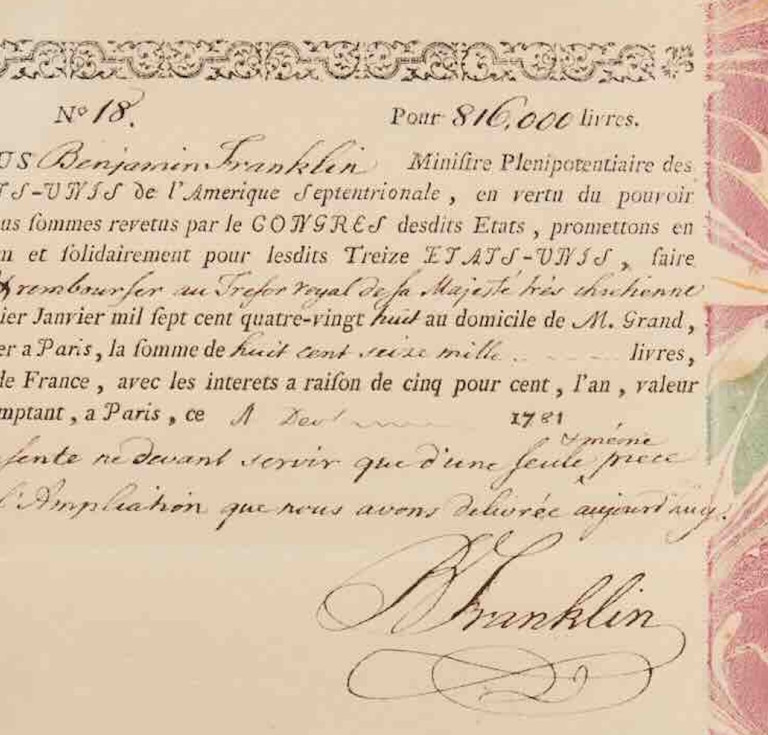 Nº 18. Pour 816,000 livres.
US Benjamin Franklin Miniſtre Plenipotentiaire des
TS-UNIS de l'Amerique Septentrionale, en vertu du pouvoir
us ſommes revetus par le CONGRES desdits Etats, promettons en
n et ſolidairement pour lesdits Treize ETATS-UNIS, faire
rembourſer au Treſor royal de ſa Majesté très chretienne
ier Janvier mil ſept cent quatre-vingt huit au domicile de M. Grand,
er a Paris, la ſomme de huit cent seize mille livres,
de France, avec les interets a raiſon de cinq pour cent, l'an, valeur
mptant, a Paris, ce 1781
& même
ſente ne devant servir que d'une ſeule ‸ piece
l'Ampliation que nous avons delivrée aujourd'huy.
B Franklin